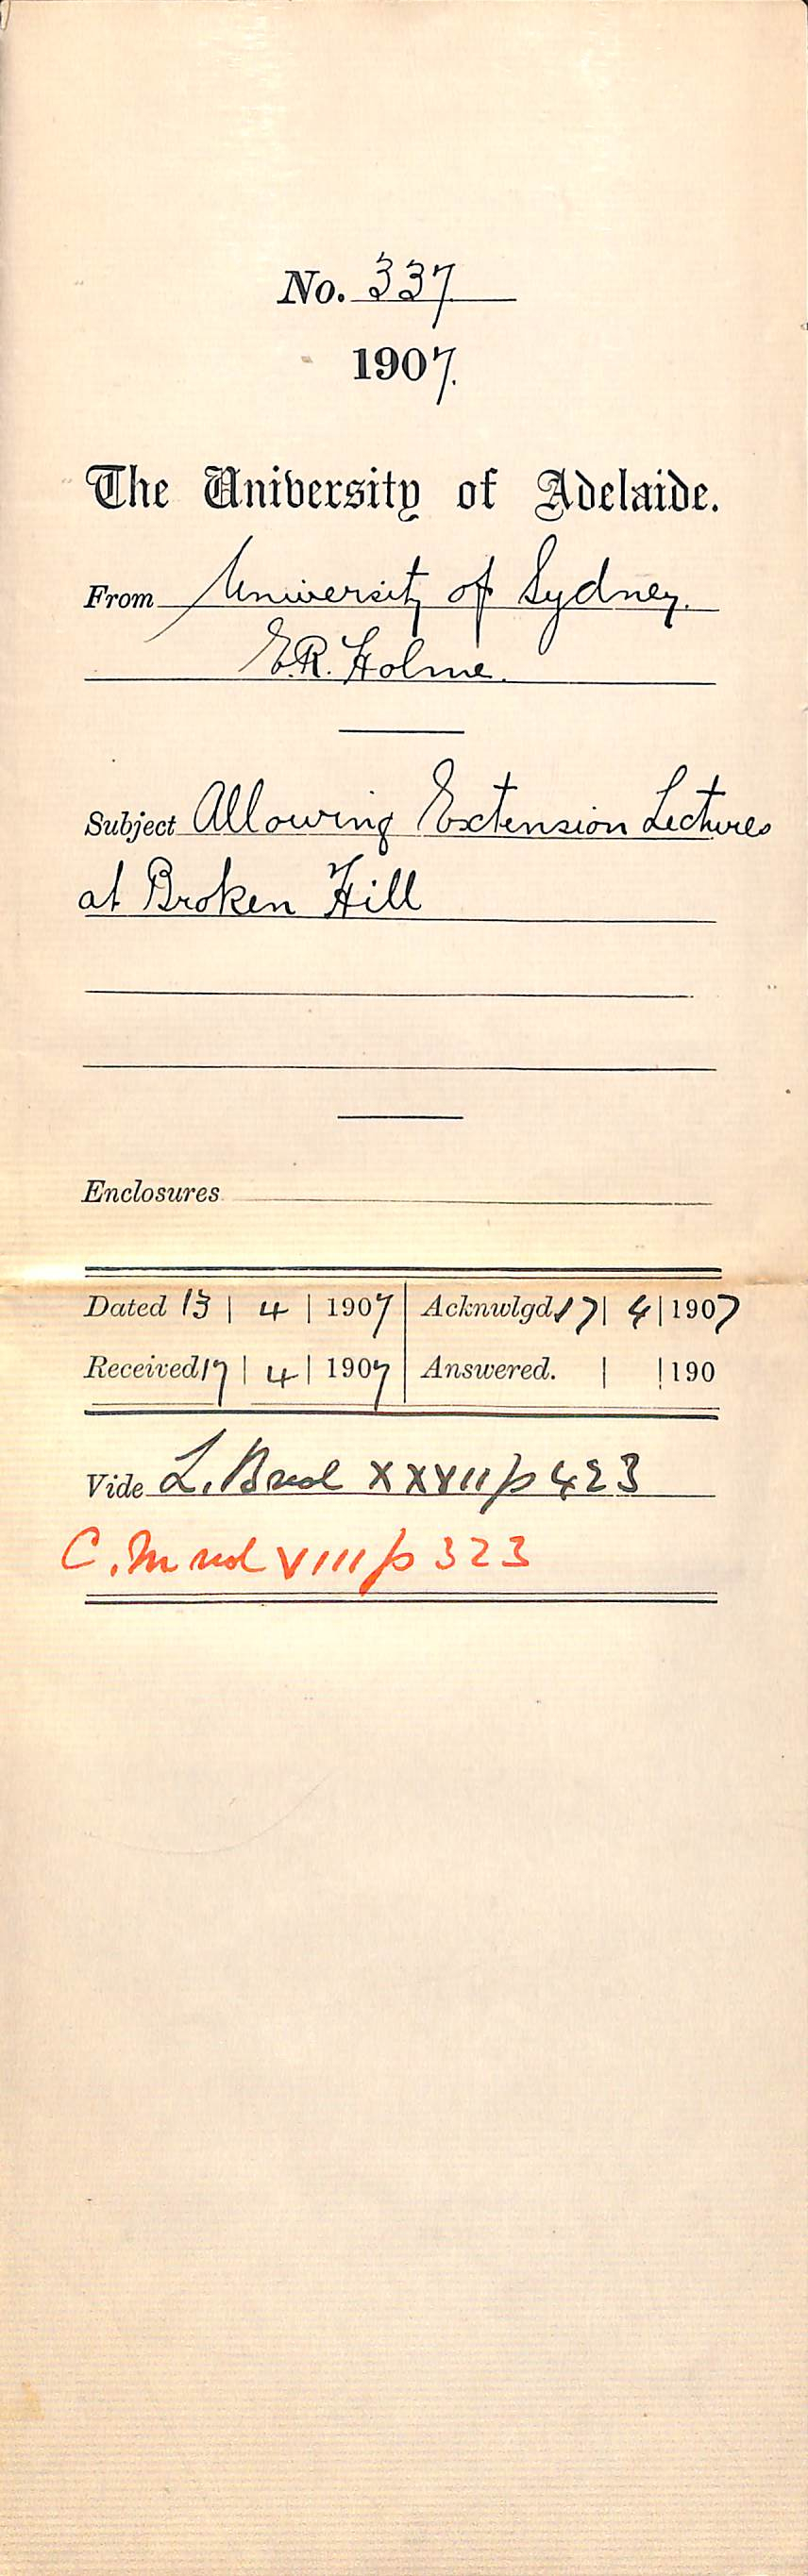 No. 337
1907.
The University of Adelaide.
From University of Sydney.
E.R. Holme.
Subject Allowing Extension Lectures
at Broken Hill
Enclosures
Dated 13 | 4 | 1907 | Acknwlgd. 17 | 4 | 1907
Received 17 | 4 | 1907 | Answered. | | 190
Vide L.B vol XXVII p 423
C.M vol VIII p 323